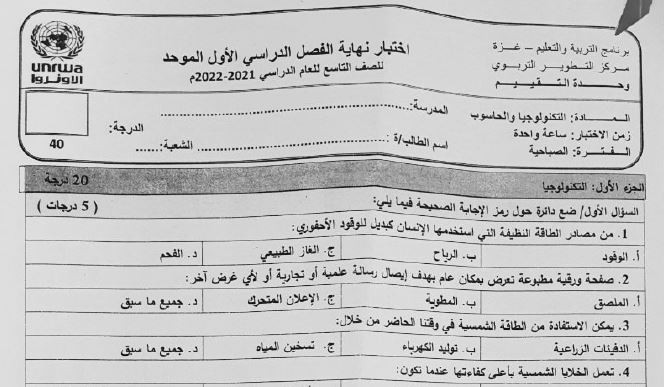 برنامج التربية والتعليم – غزة
مركز التطوير التربوي
وحدة التقييم
اختبار نهاية الفصل الدراسي الأول الموحد
للصف التاسع للعام الدراسي 2021-2022م
unrwa
الأونروا
المــادة: التكنولوجيا والحاسوب
زمن الاختبار: ساعة واحدة
الفـترة: الصباحية
المدرسة:
اسم الطالب/ة:
الشعبة:
الدرجة:
40
الجزء الأول: التكنولوجيا 20 درجة
السؤال الأول/ ضع دائرة حول رمز الإجابة الصحيحة فيما يلي: ( 5 درجات )
1. من مصادر الطاقة النظيفة التي استخدمها الإنسان كبديل للوقود الأحفوري:
أ. الوقود ب. الرياح ج. الغاز الطبيعي د. الفحم
2. صفحة ورقية مطبوعة تعرض بمكان عام بهدف إيصال رسالة علمية أو تجارية أو لأي غرض آخر:
أ. الملصق ب. المطوية ج. الإعلان المتحرك د. جميع ما سبق
3. يمكن الاستفادة من الطاقة الشمسية في وقتنا الحاضر من خلال:
أ. الدفيئات الزراعية ب. توليد الكهرباء ج. تسخين المياه د. جميع ما سبق
4. تعمل الخلايا الشمسية بأعلى كفاءتها عندما تكون: